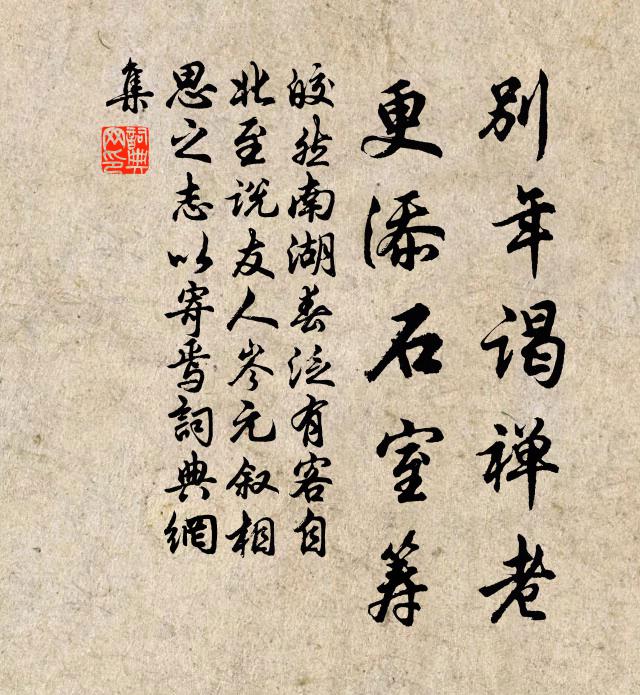 别年谒禅老
更添石室筹
皎然南湖春泛有客自
北至说友人岑元叙相
思之志以寄焉詞典網
集
詞典
网印